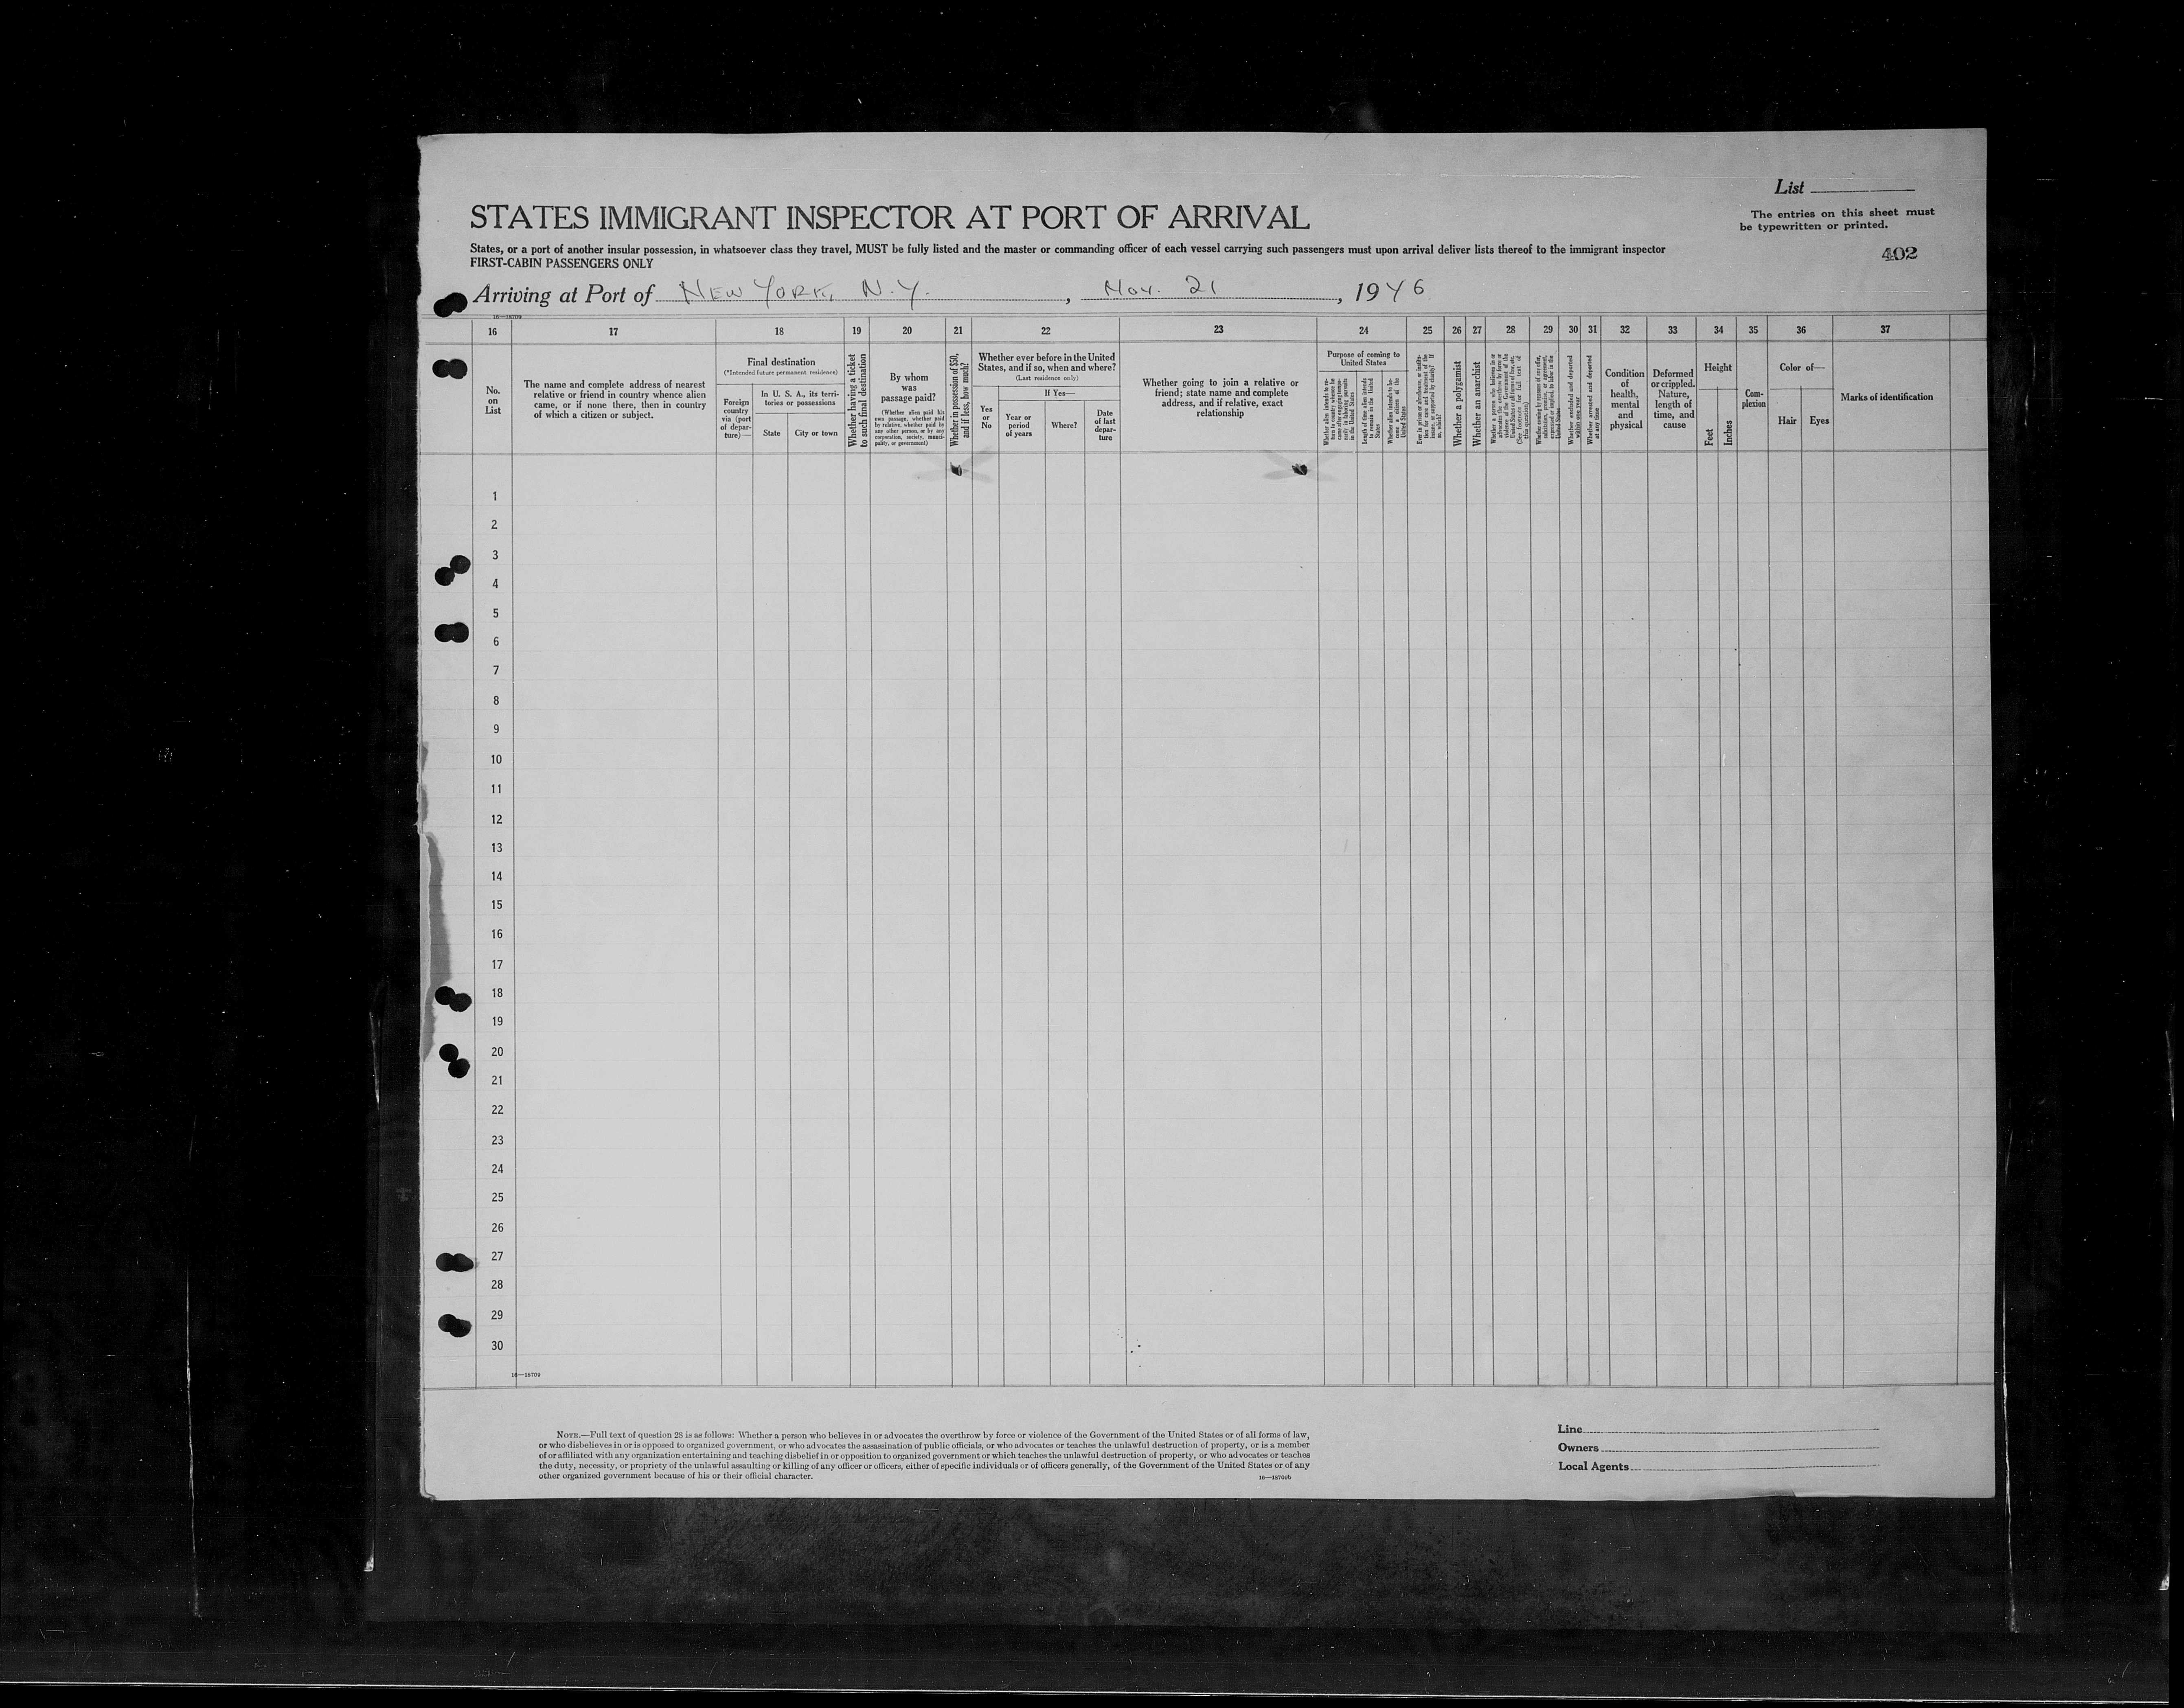 List
The entries on this sheet must
be typewritten or printed.
402
STATES IMMIGRANT INSPECTOR AT PORT OF ARRIVAL
States, or a port of another insular possession, in whatsoever class they travel, MUST be fully listed and the master or commanding officer of each vessel carrying such passengers must upon arrival deliver lists thereof to the immigrant inspector
FIRST-CABIN PASSENGERS ONLY
Arriving at Port of NEW YORK, N.Y., Nov. 21, 1946
16—18709
16 17 18 19 20 21 22 23 24 25 26 27 28 29 30 31 32 33 34 35 36 37
No.
on
List
The name and complete address of nearest
relative or friend in country whence alien
came, or if none there, then in country
of which a citizen or subject.
Final destination
(*Intended future permanent residence)
Foreign
country
via (port
of depar-
ture)—
In U. S. A., its terri-
tories or possessions
State
City or town
Whether having a ticket
to such final destination
By whom
was
passage paid?
(Whether alien paid his
own passage, whether paid
by relative, whether paid by
any other person, or by any
corporation, society, munici-
pality, or government)
Whether in possession of $50,
and if less, how much?
Whether ever before in the United
States, and if so, when and where?
(Last residence only)
Yes
or
No
If Yes—
Year or
period
of years
Where?
Date
of last
depar-
ture
Whether going to join a relative or
friend; state name and complete
address, and if relative, exact
relationship
Purpose of coming to
United States
Whether alien intends to re-
turn to country whence he
came after engaging tempo-
rarily in laboring pursuits
in the United States
Length of time alien intends
to remain in the United
States
Whether alien intends to be-
come a citizen of the
United States
Ever in prison or almshouse, or institu-
tion for care and treatment of the
insane, or supported by charity? If
so, which?
Whether a polygamist
Whether an anarchist
Whether a person who believes in or
advocates the overthrow by force or
violence of the Government of the
United States or all forms of law, etc.
(See footnote for full text of
this question)
Whether coming by reason of any offer,
solicitation, promise, or agreement,
expressed or implied, to labor in the
United States
Whether excluded and deported
within one year
Whether arrested and deported
at any time
Condition
of
health,
mental
and
physical
Deformed
or crippled.
Nature,
length of
time, and
cause
Height
Feet
Inches
Com-
plexion
Color of—
Hair
Eyes
Marks of identification
1
2
3
4
5
6
7
8
9
10
11
12
13
14
15
16
17
18
19
20
21
22
23
24
25
26
27
28
29
30
16—18709
NOTE.—Full text of question 28 is as follows: Whether a person who believes in or advocates the overthrow by force or violence of the Government of the United States or of all forms of law,
or who disbelieves in or is opposed to organized government, or who advocates the assassination of public officials, or who advocates or teaches the unlawful destruction of property, or is a member
of or affiliated with any organization entertaining and teaching disbelief in or opposition to organized government or which teaches the unlawful destruction of property, or who advocates or teaches
the duty, necessity, or propriety of the unlawful assaulting or killing of any officer or officers, either of specific individuals or of officers generally, of the Government of the United States or of any
other organized government because of his or their official character.
16—18709b
Line
Owners
Local Agents